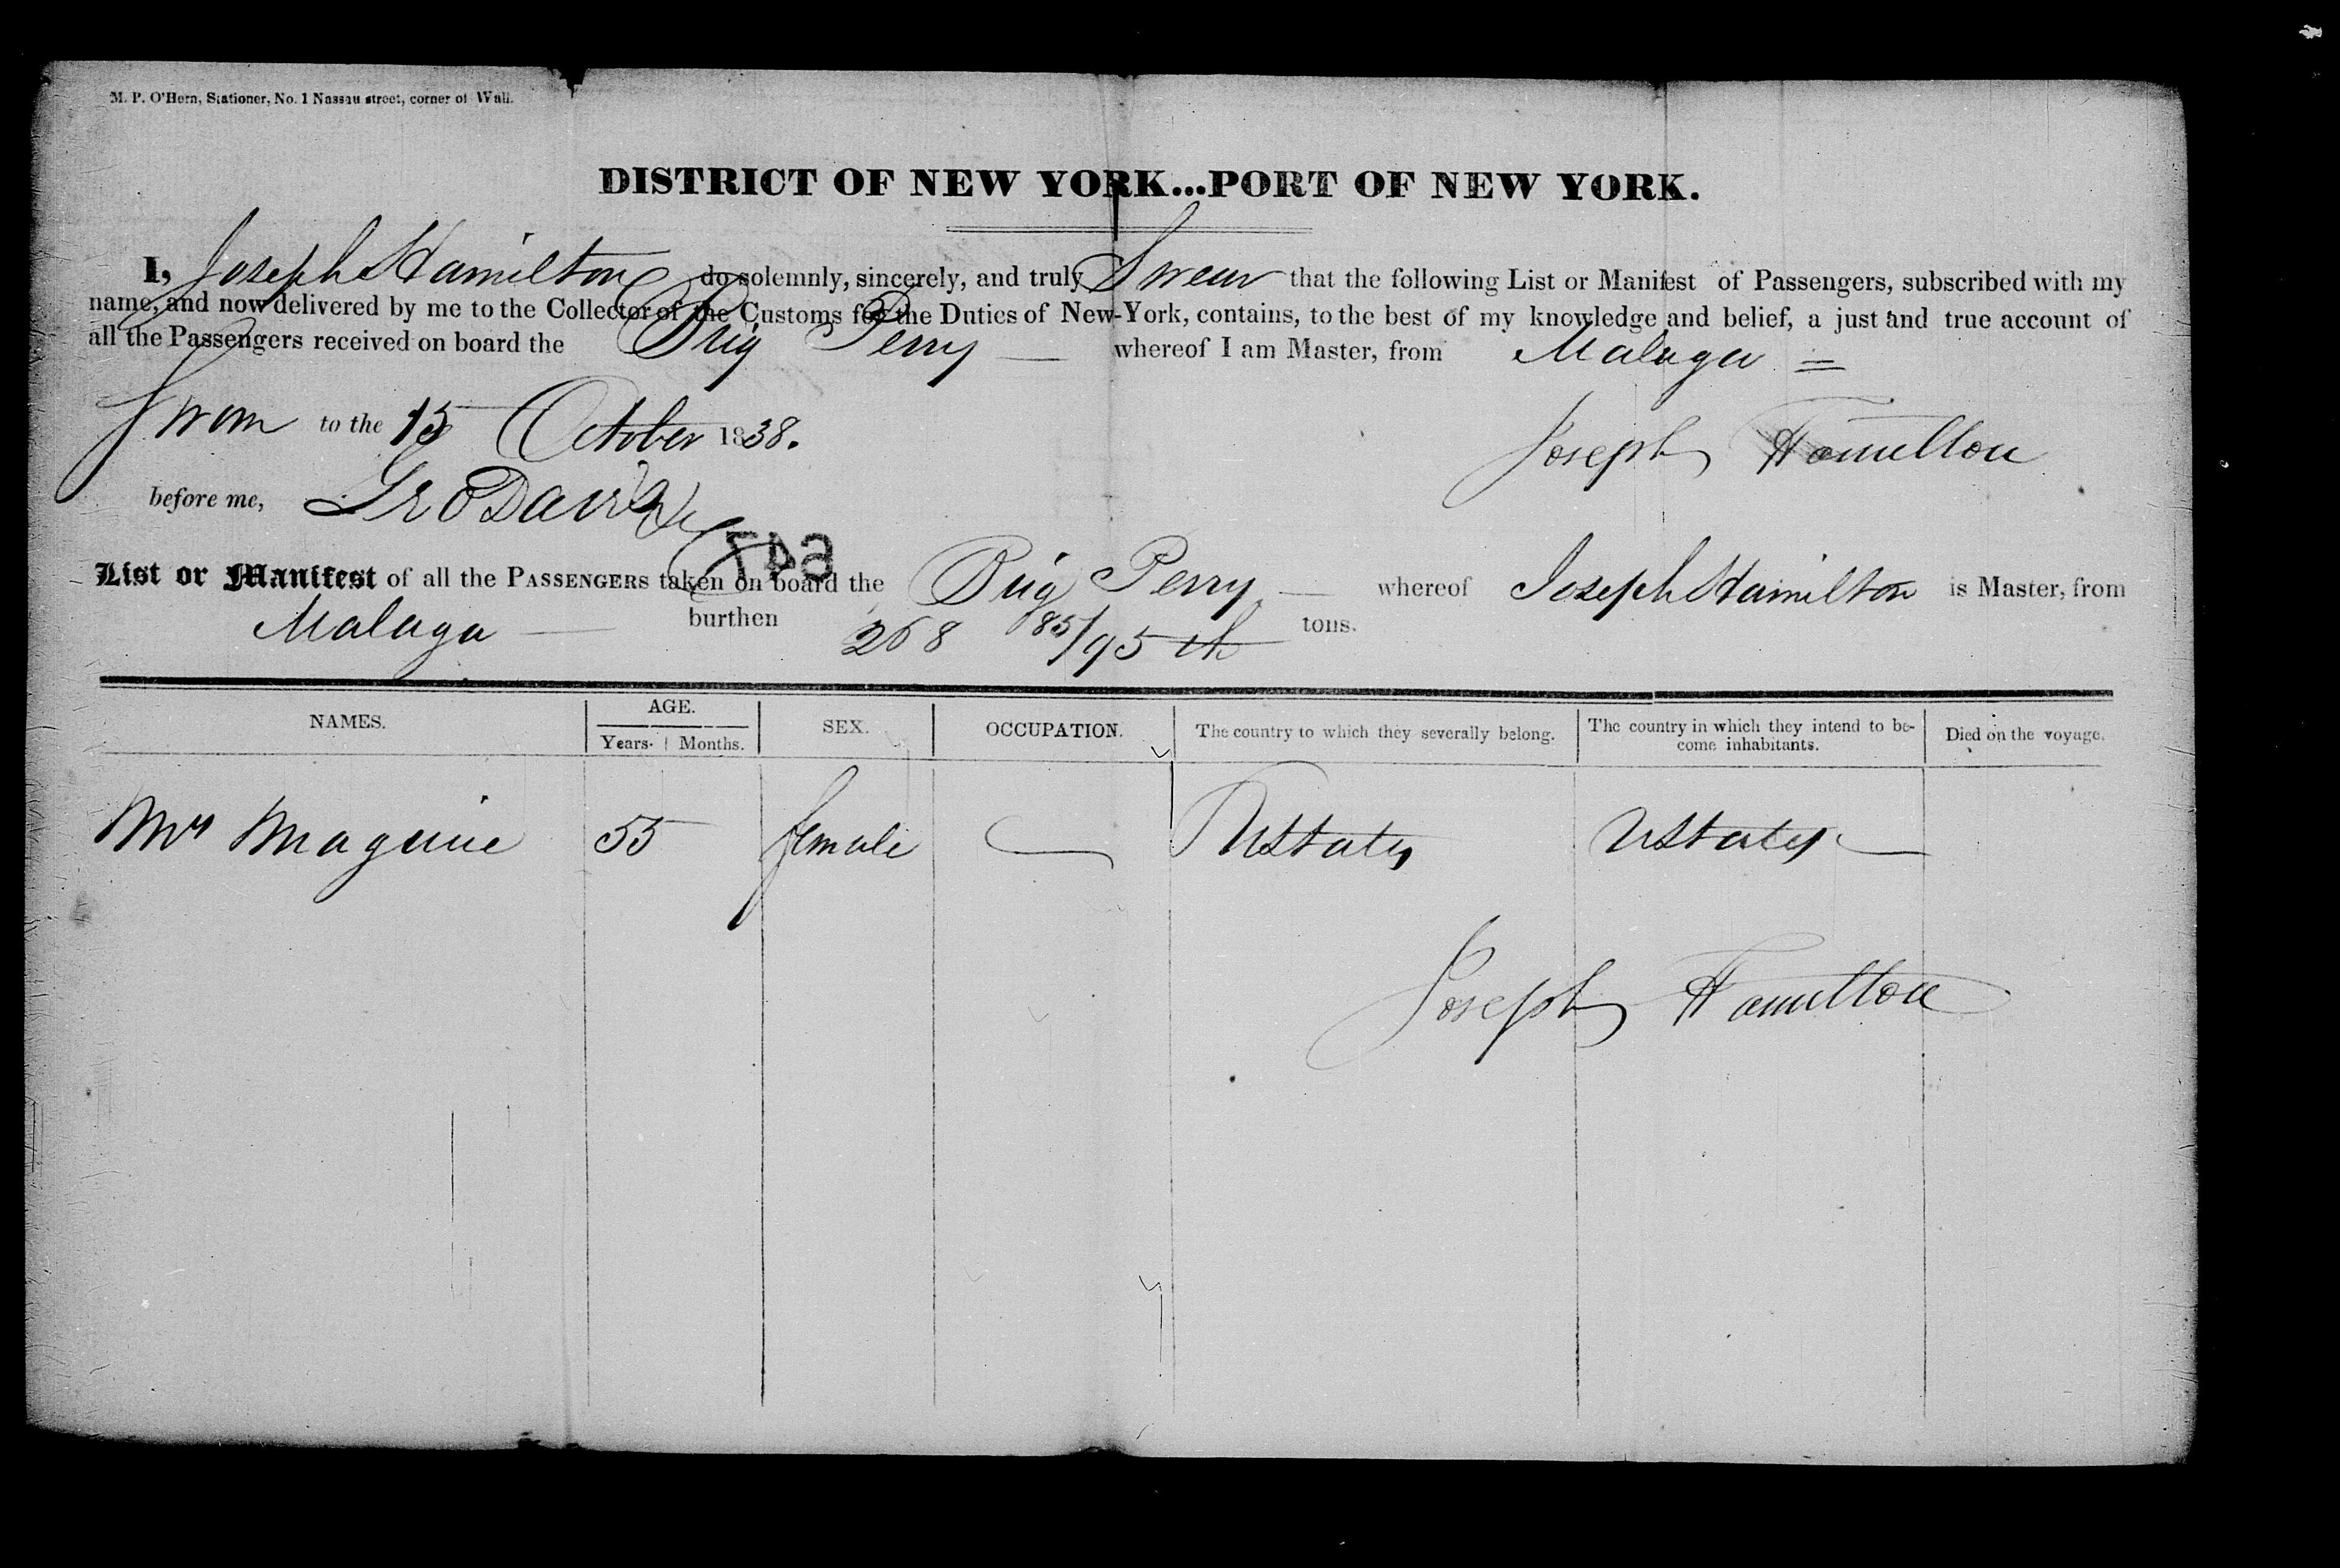 M. P. O'Hern, Stationer, No. 1 Nassau street, corner of Wall.
DISTRICT OF NEW YORK...PORT OF NEW YORK.
I, Joseph Hamilton do solemnly, sincerely, and truly Swear that the following List or Manifest of Passengers, subscribed with my
name, and now delivered by me to the Collector of the Customs for the Duties of New-York, contains, to the best of my knowledge and belief, a just and true account of
all the Passengers received on board the Brig Perry — whereof I am Master, from Malaga =
Sworn to the 15 October 1838.
Joseph Hamilton
before me, Geo Davis
647
List or Manifest of all the PASSENGERS taken on board the Brig Perry — whereof Joseph Hamilton is Master, from
Malaga — burthen 268 85/95th tons.
NAMES. AGE. SEX. OCCUPATION. The country to which they severally belong. The country in which they intend to be- Died on the voyage.
Years. Months. come inhabitants.
Mrs Maguire 55 female — UStates UStates —
Joseph Hamilton